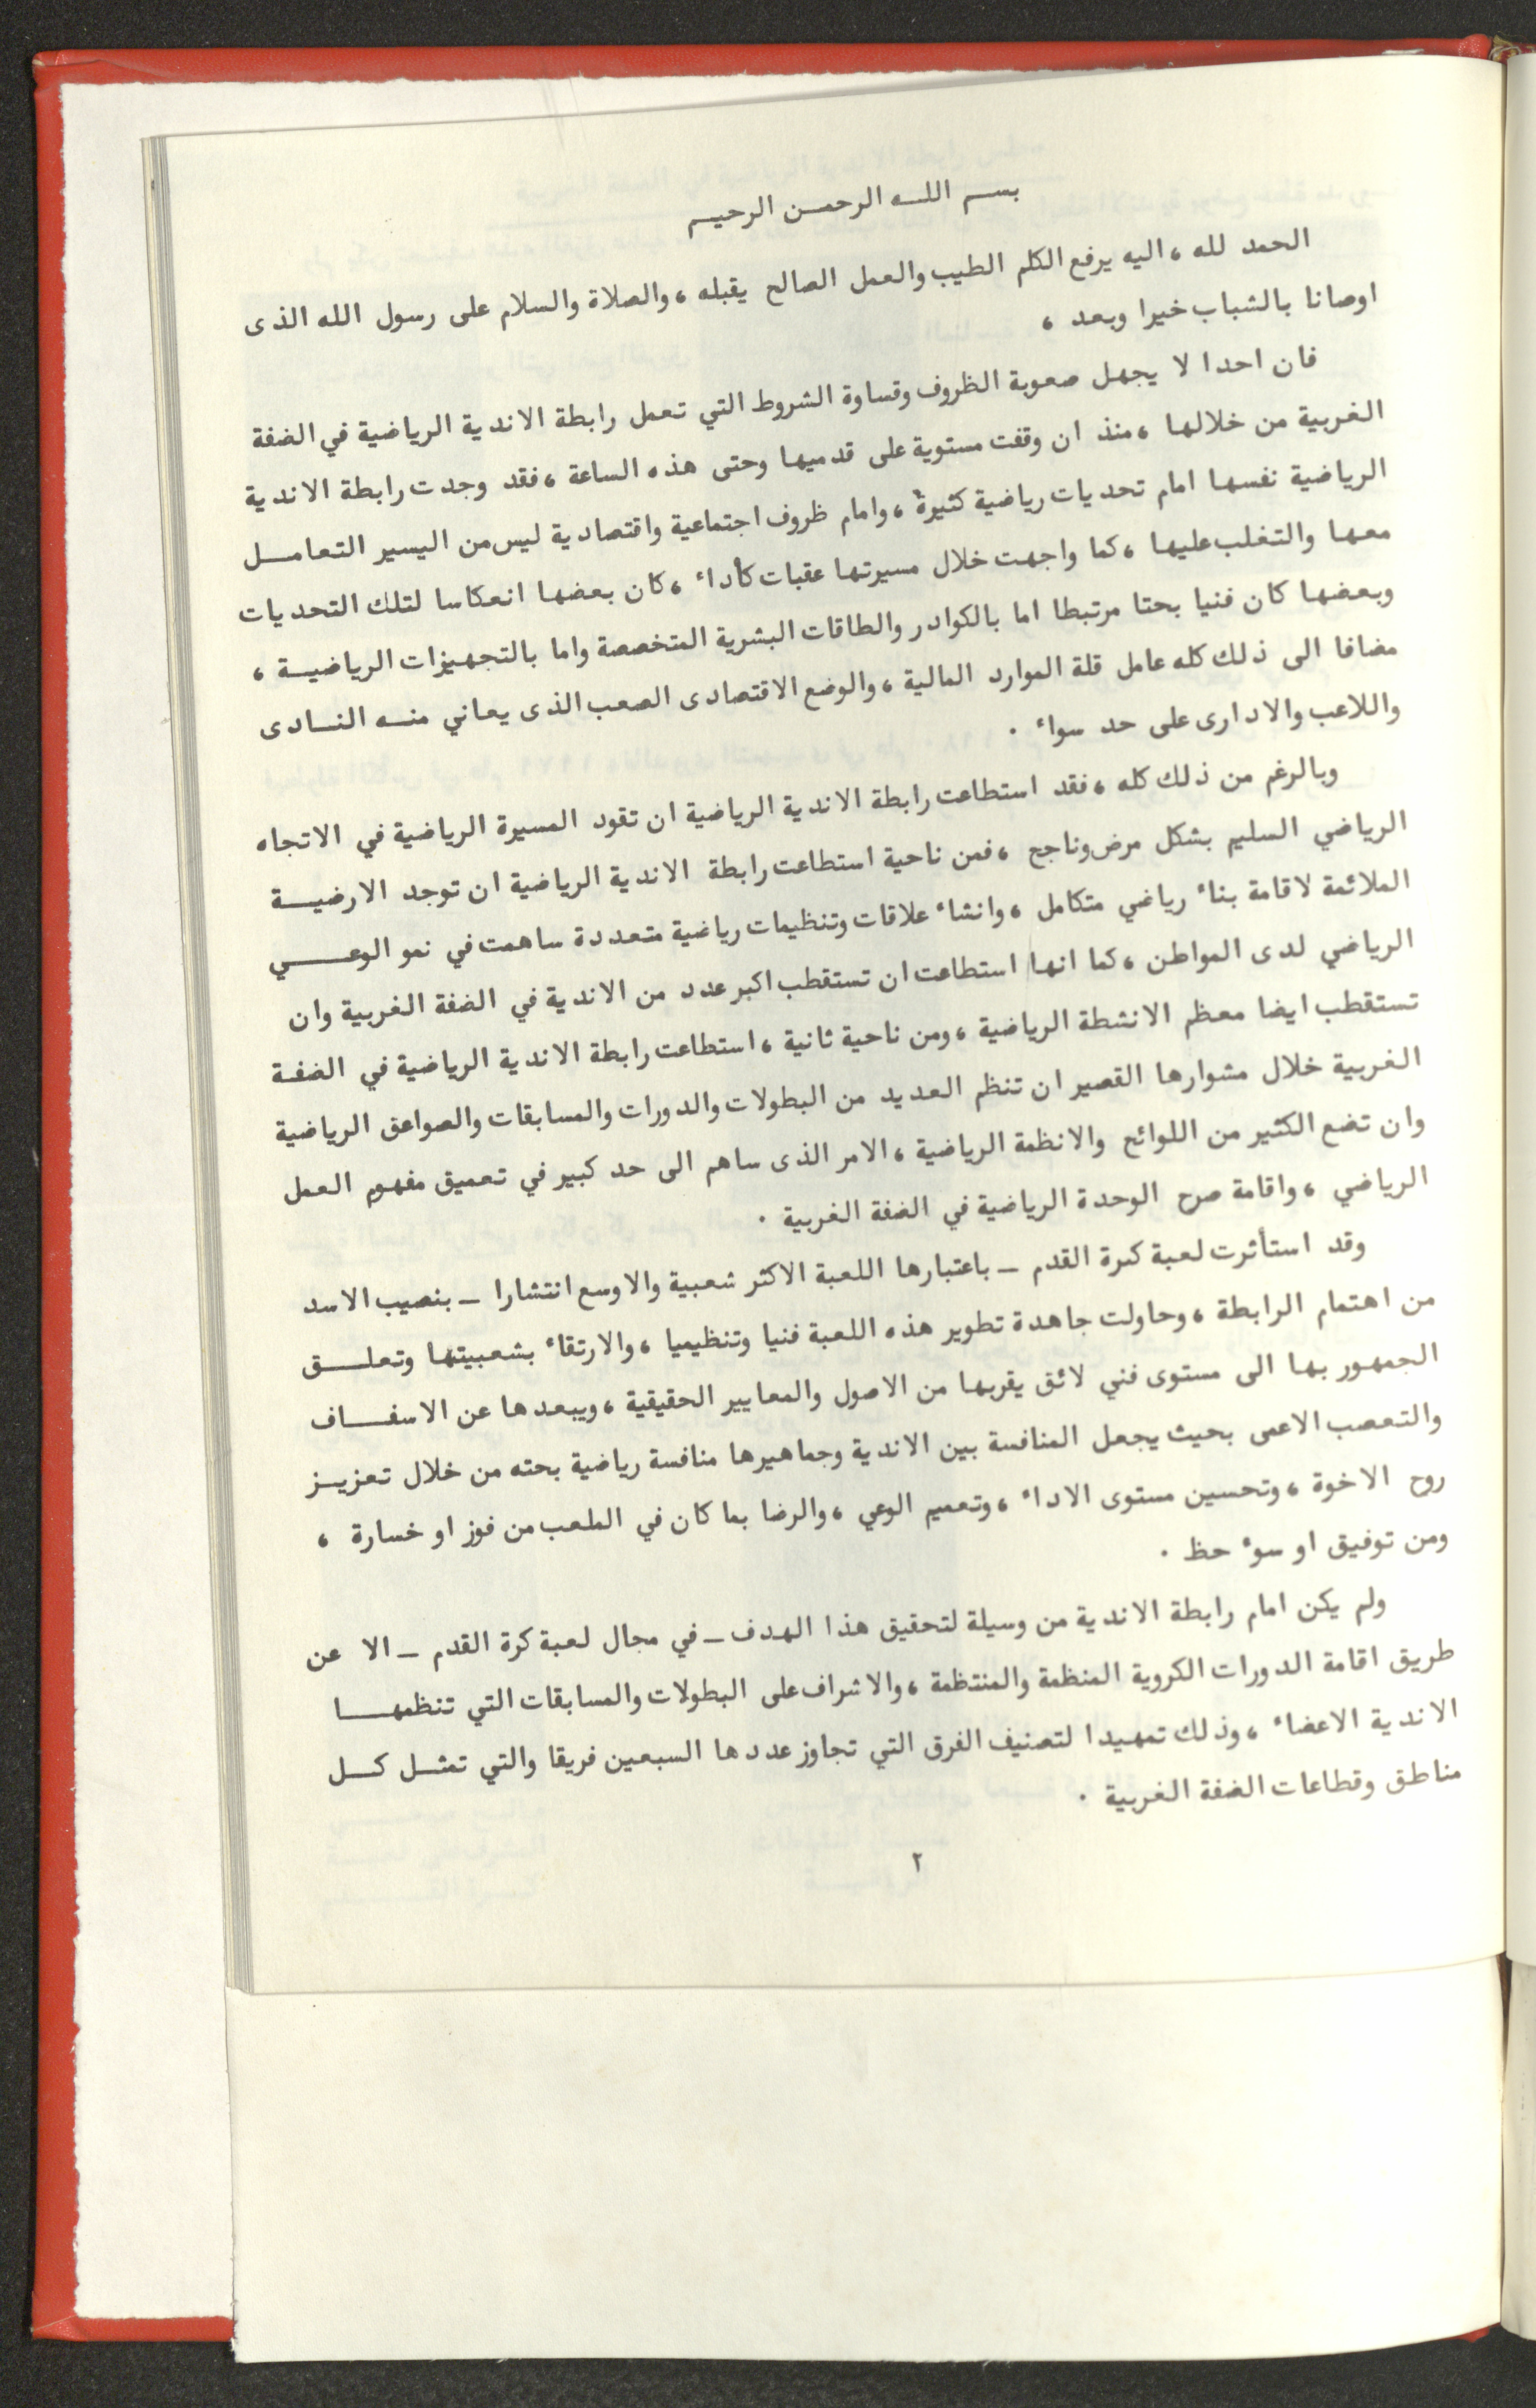 بسم الله الرحمن الرحيم
الحمد لله ، اليه يرفع الكلم الطيب والعمل الصالح يقبله ، والصلاة والسلام على رسول الله الذى
اوصانا بالشباب خيرا وبعد ،
فان احدا لا يجهل صعوبة الظروف وقساوة الشروط التي تعمل رابطة الاندية الرياضية في الضفة
الغربية من خلالها ، منذ ان وقفت مستوية على قدميها وحتى هذه الساعة ، فقد وجدت رابطة الاندية
الرياضية نفسها امام تحديات رياضية كثيرة ، وامام ظروف اجتماعية واقتصادية ليس من اليسير التعامل
معها والتغلب عليها ، كما واجهت خلال مسيرتها عقبات كأداء ، كان بعضها انعكاسا لتلك التحديات
وبعضها كان فنيا بحتا مرتبطا اما بالكوادر والطاقات البشرية المتخصصة واما بالتجهيزات الرياضية ،
مضافا الى ذلك كله عامل قلة الموارد المالية ، والوضع الاقتصادى الصعب الذى يعاني منه النادى
واللاعب والادارى على حد سواء .
وبالرغم من ذلك كله ، فقد استطاعت رابطة الاندية الرياضية ان تقود المسيرة الرياضية في الاتجاه
الرياضي السليم بشكل مرض وناجح ، فمن ناحية استطاعت رابطة الاندية الرياضية ان توجد الارضية
الملائمة لاقامة بناء رياضي متكامل ، وانشاء علاقات وتنظيمات رياضية متعددة ساهمت في نمو الوعي
الرياضي لدى المواطن ، كما انها استطاعت ان تستقطب اكبر عدد من الاندية في الضفة الغربية وان
تستقطب ايضا معظم الانشطة الرياضية ، ومن ناحية ثانية ، استطاعت رابطة الاندية الرياضية في الضفة
الغربية خلال مشوارها القصير ان تنظم العديد من البطولات والدورات والمسابقات والصواعق الرياضية
وان تضع الكثير من اللوائح والانظمة الرياضية ، الامر الذى ساهم الى حد كبير في تعميق مفهوم العمل
الرياضي ، واقامة صرح الوحدة الرياضية في الضفة الغربية .
وقد استأثرت لعبة كرة القدم – باعتبارها اللعبة الاكثر شعبية والاوسع انتشارا – بنصيب الاسد
من اهتمام الرابطة ، وحاولت جاهدة تطوير هذه اللعبة فنيا وتنظيميا ، والارتقاء بشعبيتها وتعلق
الجمهور بها الى مستوى فني لائق يقربها من الاصول والمعايير الحقيقية ، ويبعدها عن الاسفاف
والتعصب الاعمى بحيث يجعل المنافسة بين الاندية وجماهيرها منافسة رياضية بحته من خلال تعزيز
روح الاخوة ، وتحسين مستوى الاداء ، وتعميم الوعي ، والرضا بما كان في الملعب من فوز او خسارة ،
ومن توفيق او سوء حظ .
ولم يكن امام رابطة الاندية من وسيلة لتحقيق هذا الهدف – في مجال لعبة كرة القدم – الا عن
طريق اقامة الدورات الكروية المنظمة والمنتظمة ، والاشراف على البطولات والمسابقات التي تنظمها
الاندية الاعضاء ، وذلك تمهيدا لتصنيف الفرق التي تجاوز عددها السبعين فريقا والتي تمثل كل
مناطق وقطاعات الضفة الغربية .
٢